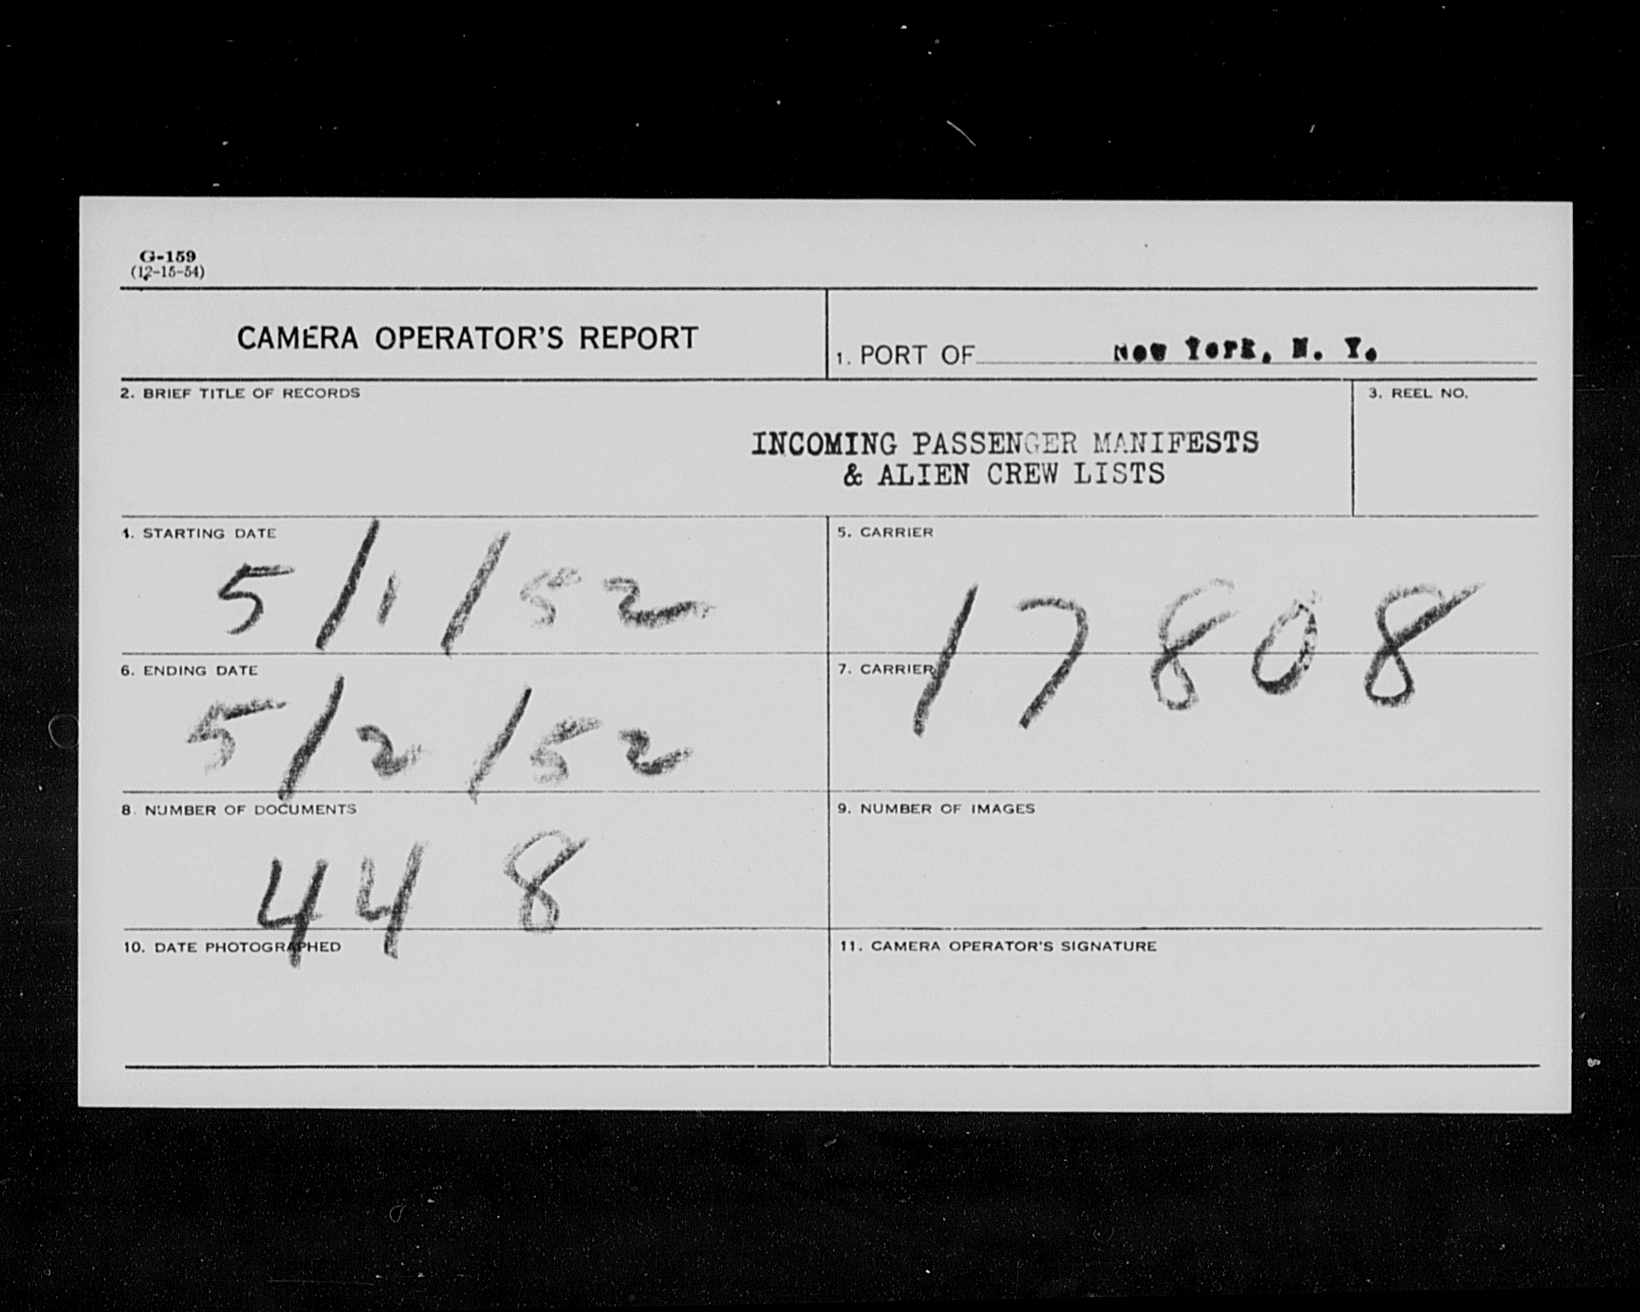 G-159
(12-15-54)
CAMERA OPERATOR'S REPORT
1. PORT OF New York, N. Y.
2. BRIEF TITLE OF RECORDS
3. REEL NO.
INCOMING PASSENGER MANIFESTS
& ALIEN CREW LISTS
1. STARTING DATE
5/1/52
5. CARRIER
17808
6. ENDING DATE
5/2/52
7. CARRIER
8. NUMBER OF DOCUMENTS
448
9. NUMBER OF IMAGES
10. DATE PHOTOGRAPHED
11. CAMERA OPERATOR'S SIGNATURE